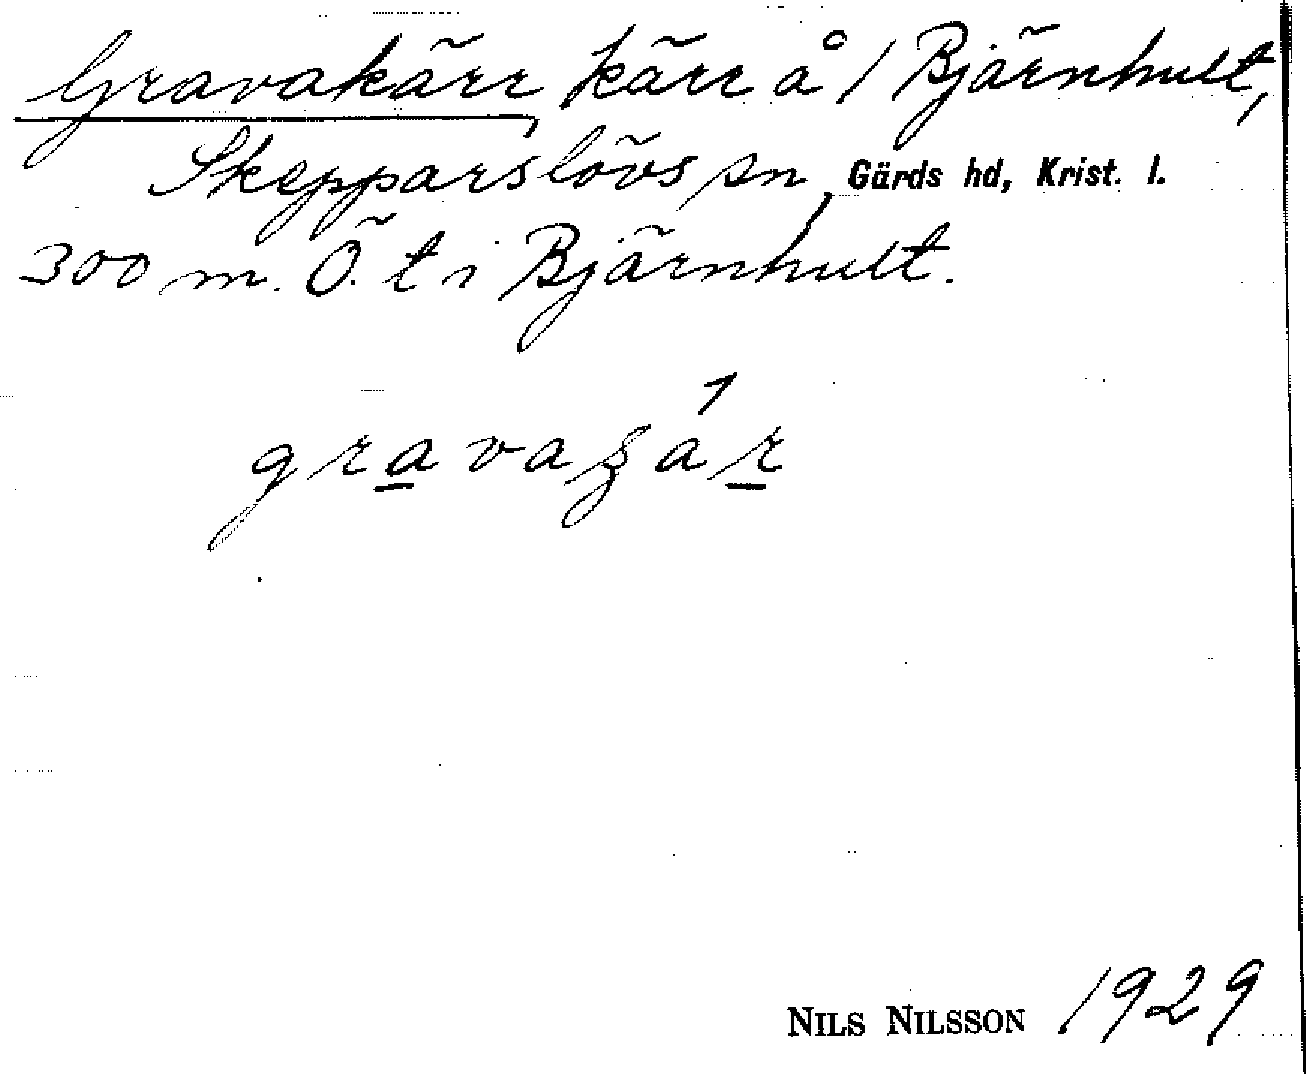 Gravakärr, kärr å 1 Bjärnhult,
Skepparslövs sn, Gärds hd, Krist. l.
300 m. Ö. t 1 Bjärnhult.
NILS NILSSON 1929